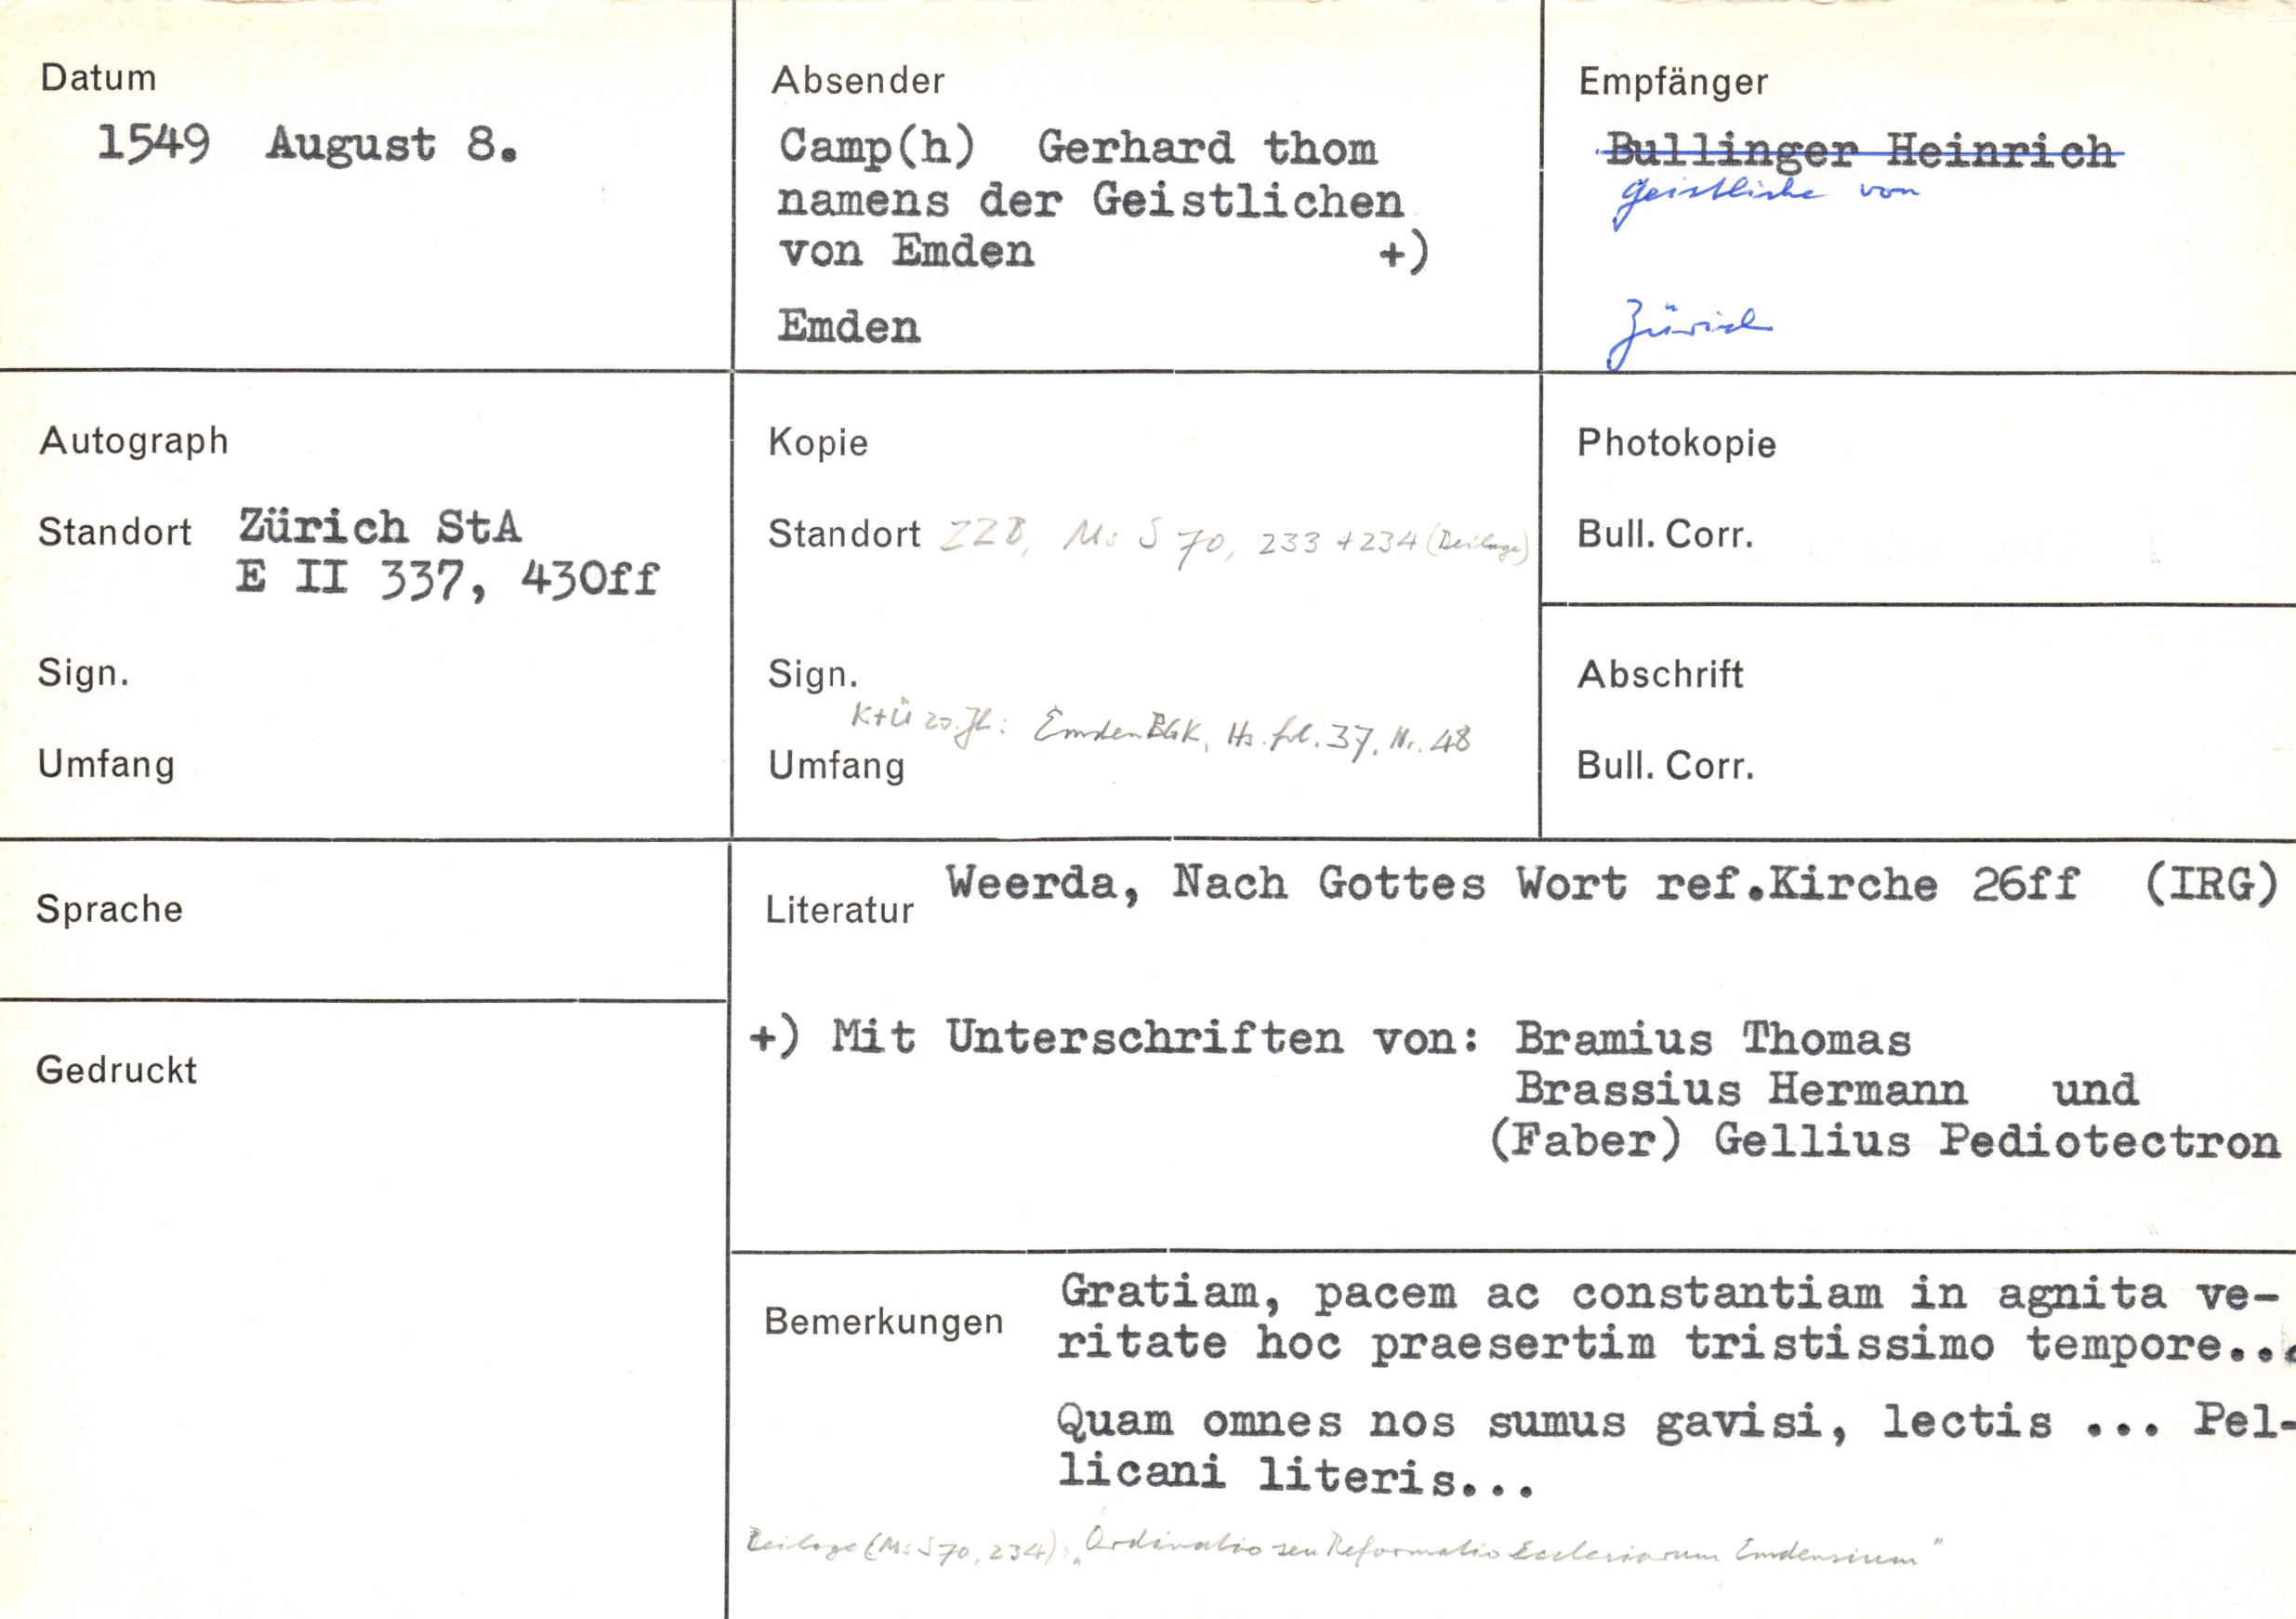 Datum
1549 August 8.
Absender
Camp(h) Gerhard thom
namens der Geistlichen
von Emden +)
Emden
Empfänger
Bullinger Heinrich
Geistliche von
Zürich
Autograph
Standort Zürich StA
E II 337, 430ff
Sign.
Umfang
Kopie
Standort ZZB, Ms S 70, 233 + 234 (Beilage)
Sign.
K+Ü 20. Jh.: Emden BGK, Hs. fol. 37, Nr. 48
Umfang
Photokopie
Bull. Corr.
Abschrift
Bull. Corr.
Sprache
Gedruckt
Literatur Weerda, Nach Gottes Wort ref.Kirche 26ff (IRG)
+) Mit Unterschriften von: Bramius Thomas
Brassius Hermann und
(Faber) Gellius Pediotectron
Bemerkungen Gratiam, pacem ac constantiam in agnita ve-
ritate hoc praesertim tristissimo tempore...
Quam omnes nos sumus gavisi, lectis ... Pel-
licani literis...
Beilage (Ms S 70, 234): „Ordinatio seu Reformatio Ecclesiarum Emdensium"